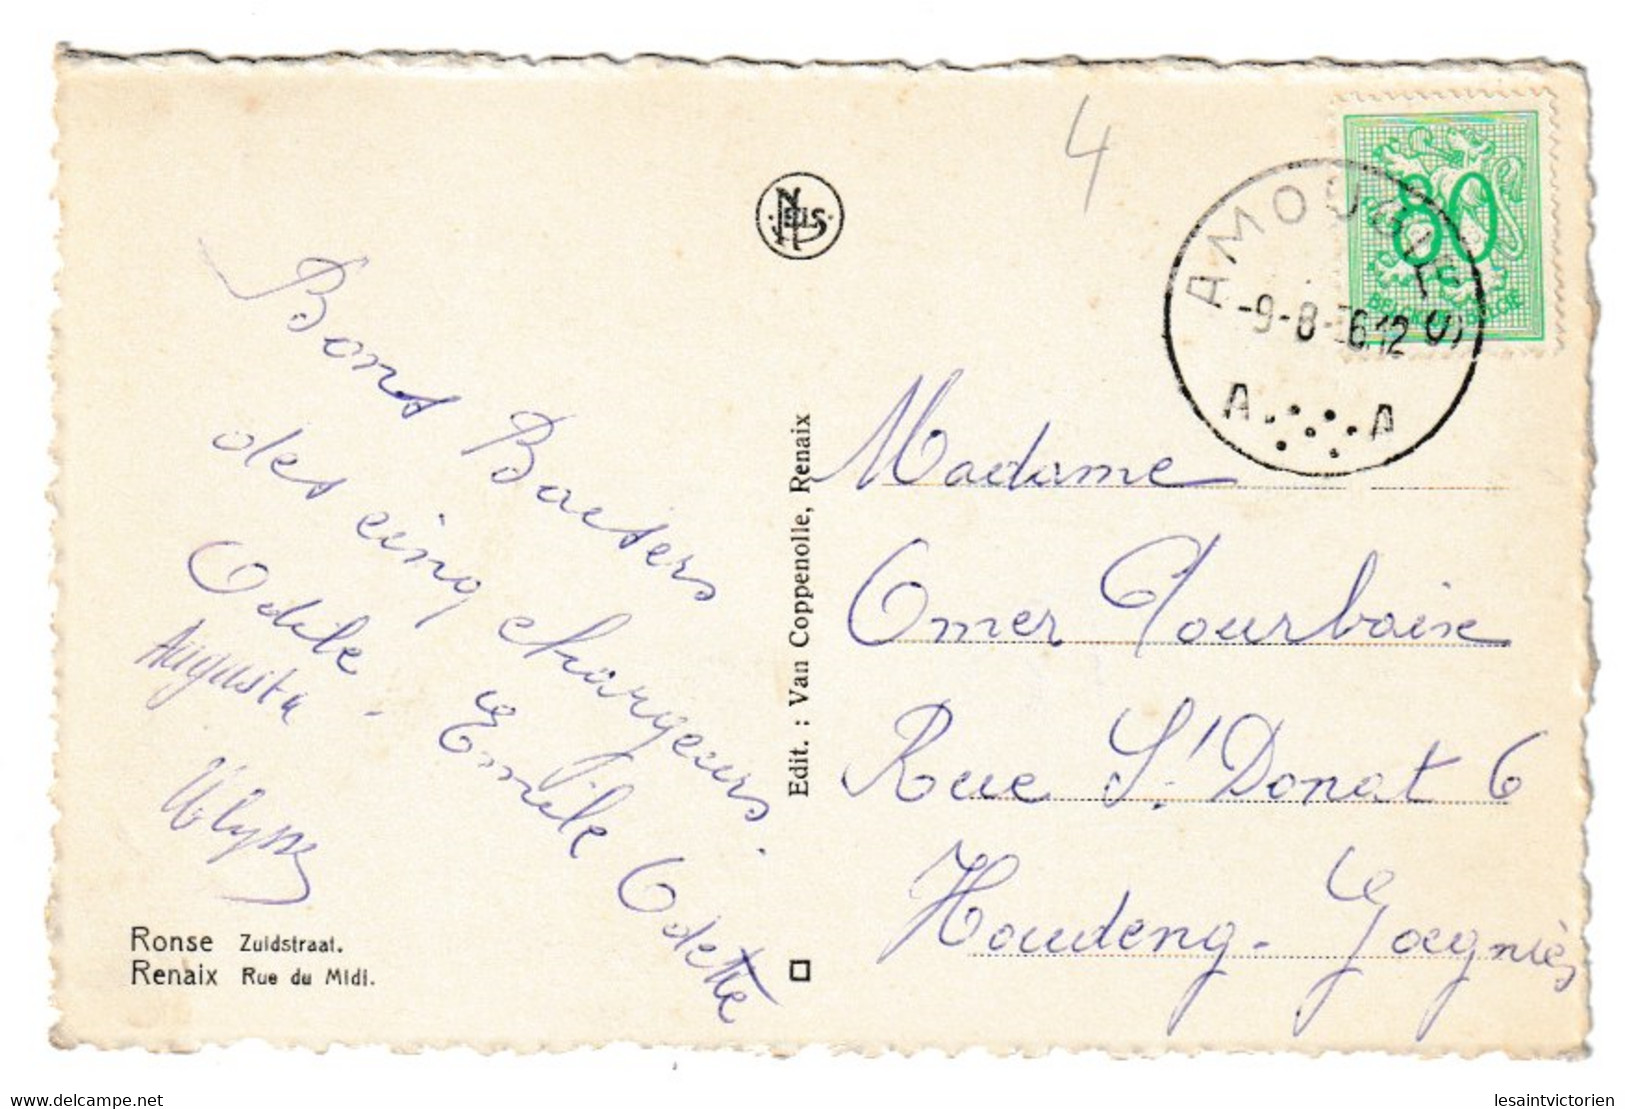 4
Nels
AMOUGIES
-9-8- 6.12
A A
80
BELGIQUE BELGIE
Bons Baisers
des cinq chargeurs.
Odile - Emile Odette
Augusta
Edit. : Van Coppenolle, Renaix
Madame
Omer Pourbaix
Rue St Donat 6
Houdeng-Goegnies
Ronse Zuidstraat.
Renaix Rue du Midi.
delcampe.net
lesaintvictorien